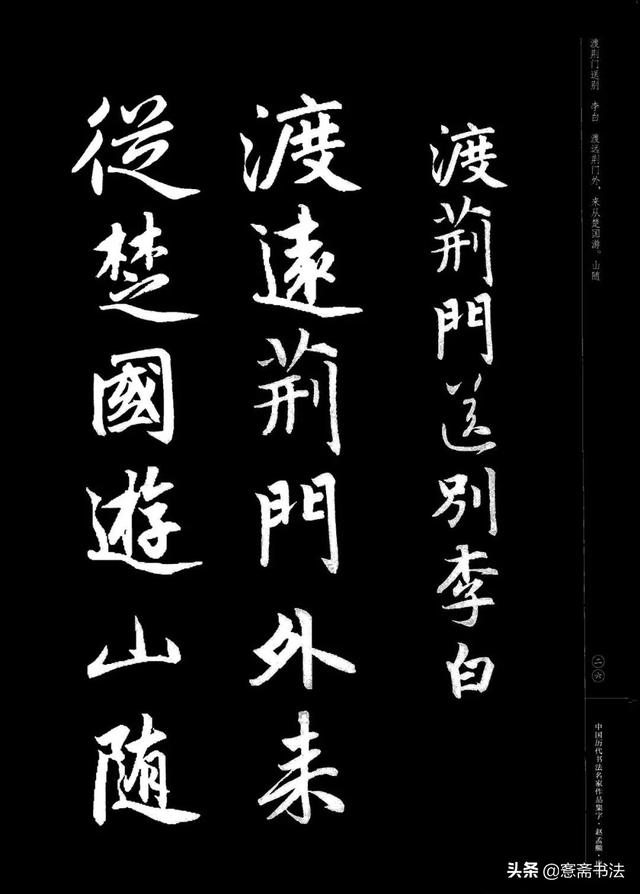 渡荊門送別李白
渡遠荊門外来
從楚國遊山随
渡荆门送别　李白　渡远荆门外，来从楚国游。山随
二六
中国历代书法名家作品集字·赵孟頫·
头条 @窓斋书法